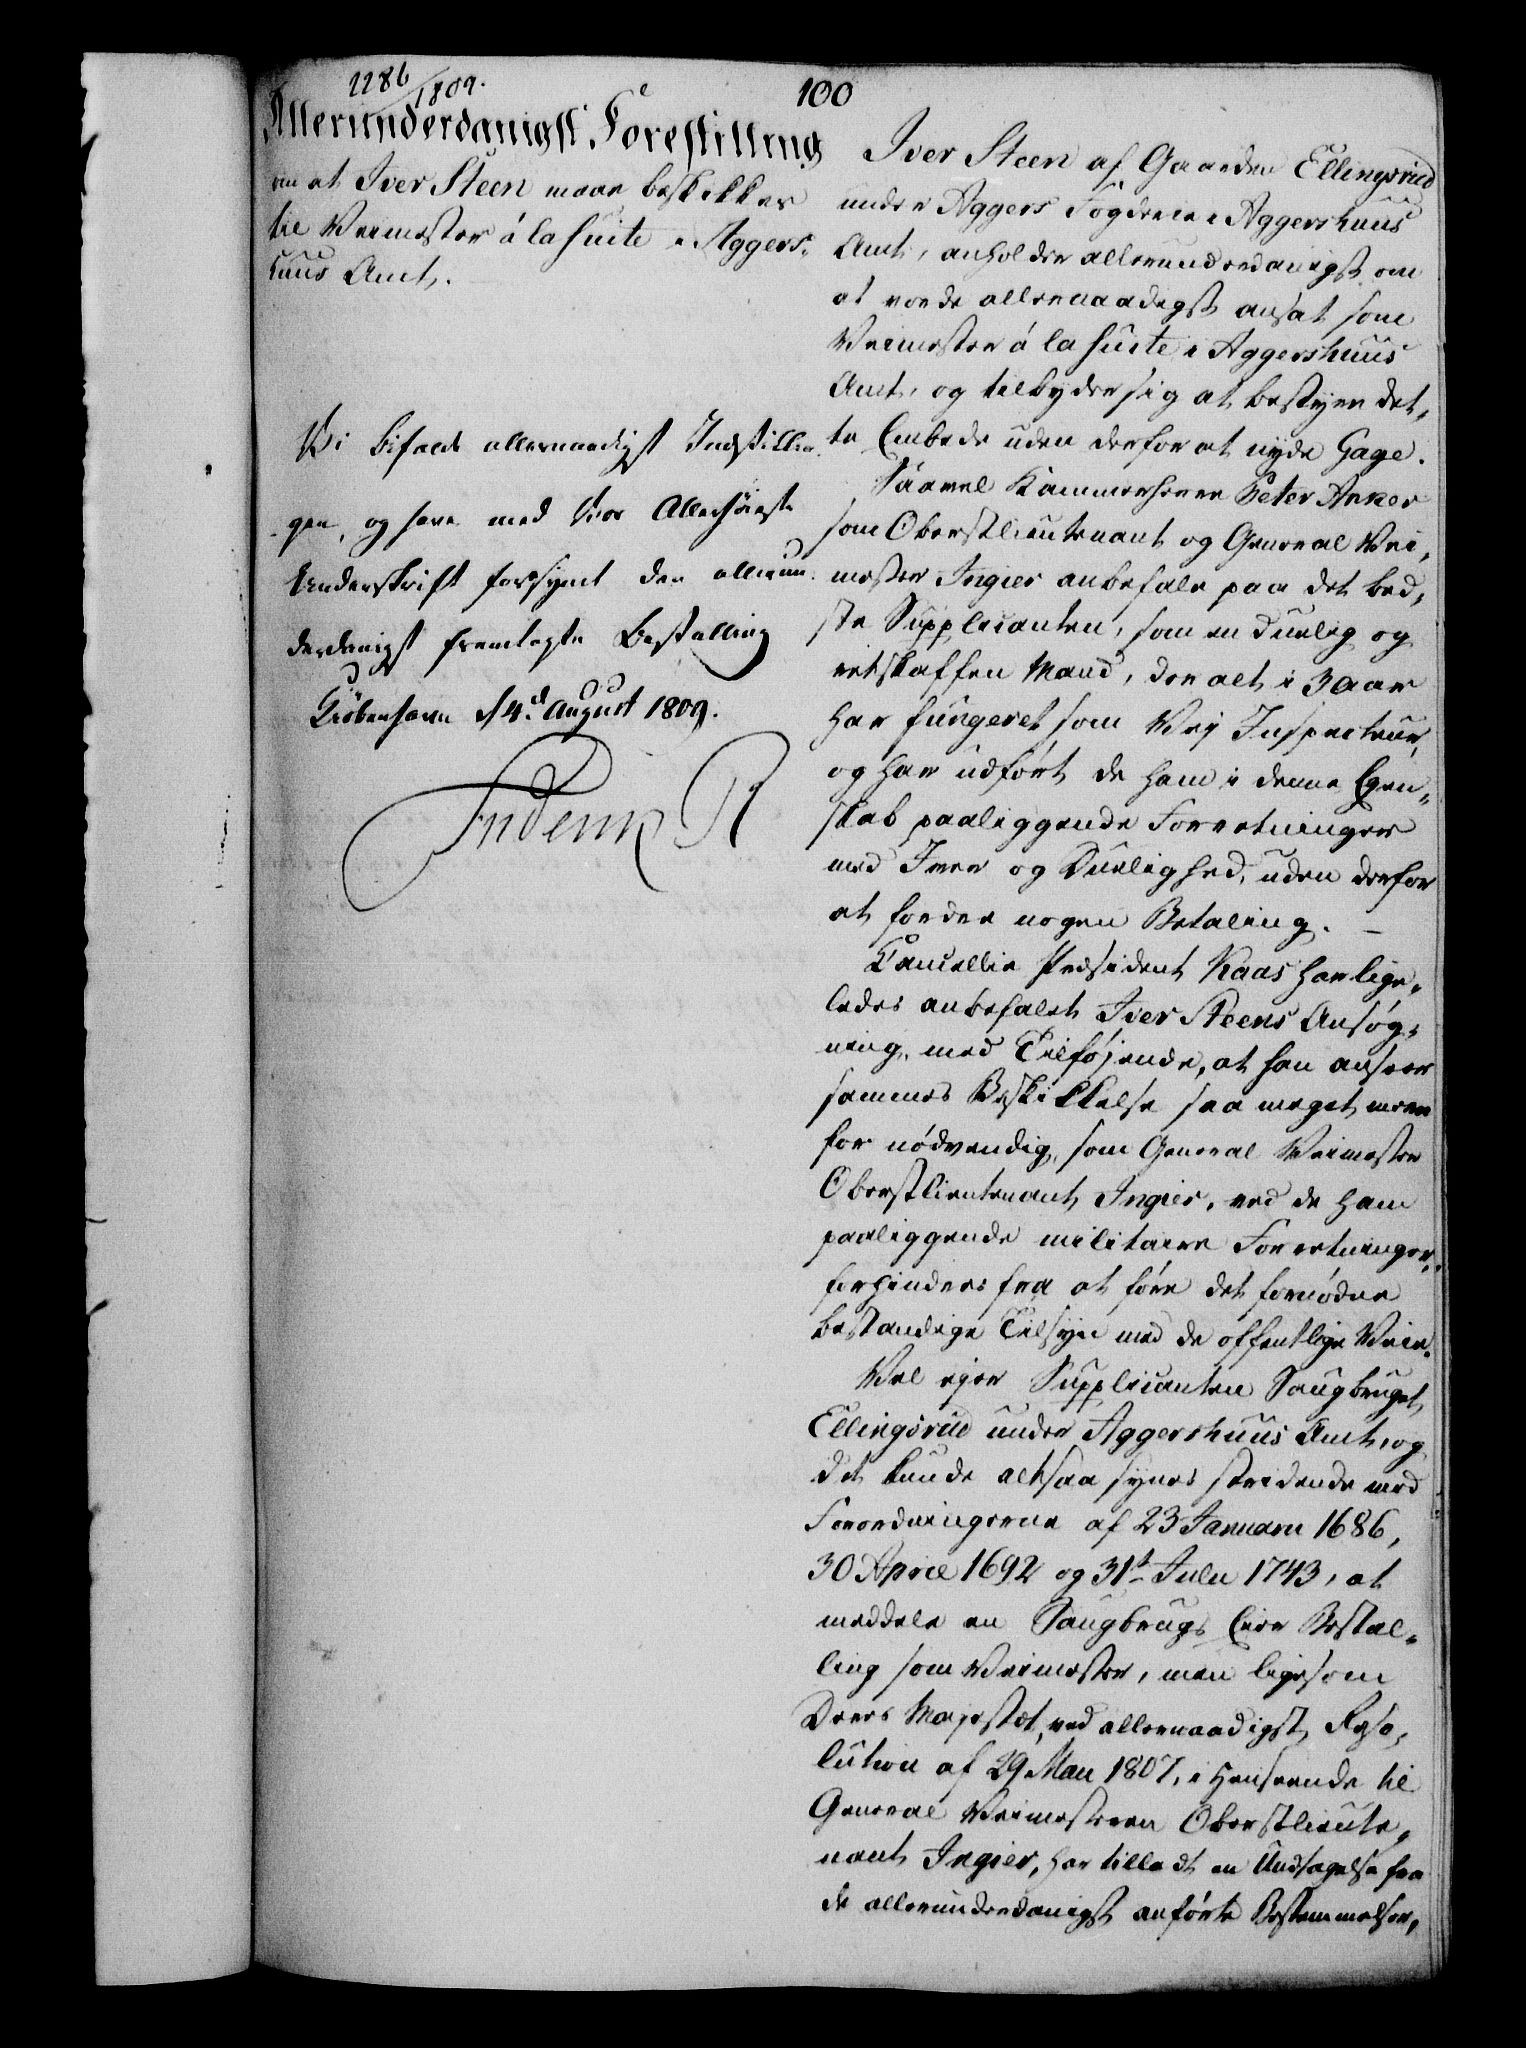 2286/1809.
100
Allerunderdanigst Forestilling
om at Iver Steen maae beskikkes
til Veimester á la suite i Aggers-
huus Amt.
Vi bifalde allernaadigst Indstillin-
gen, og have med Vor Allerhöieste
Underskrift forsynet den allerun-
derdanigst fremlagte Bestalling
Kiöbenhavn d 4d August 1809.
Frederik R
Iver Steen af Gaarden Ellingsrud
under Aggers Fogderie i Aggershuus
Amt, anholder allerunderdanigst om
at vorde allernaadigst ansat som
Veimester á la suite i Aggershuus
Amt, og tilbyder sig at bestyre det-
te Embede uden derfor at nyde Gage.
Saavel Kammerherre Peter Anker
som Oberstlieutenant og General Vei-
mester Ingier anbefale paa det bed-
ste Supplicanten, som en duelig og
retskaffen Mand, der alt i 3 Aar
har fungeret som Vej Inspecteur,
og har udfört de ham i denne Egen-
skab paaliggende Forretninger
med Iver og Duelighed, uden derfor
at fordre nogen Betaling. –
Cancellie Præsident Kaas har lige-
ledes anbefalet Iver Steens Ansög-
ning, med Tilföjende, at han anseer
sammes Beskikkelse saa meget mere
for nödvendig, som General Veimester
Oberstlieutenant Ingier, ved de ham
paaliggende militaire Forretninger
forhindres fra at före det fornödne
bestandige Tilsyn med de offentlige Veie.
Vel ejer Supplicanten Saugbruget
Ellingsrud under Aggershuus Amt, og
det kunde altsaa synes stridende med
Forordningerne af 23 Januarii 1686,
30 April 1692 og 31t Julii 1743, at
meddele en Saugbrugs Eier Bestal-
ling som Veimester, men ligesom
Deres Majestæt, ved allernaadigst Reso-
lution af 29 Maii 1807, i Henseende til
General Veimesteren Oberstlieute-
nant Ingier, har tilladt en Undtagelse fra
de allerunderdanigst anförte Bestemmelser,